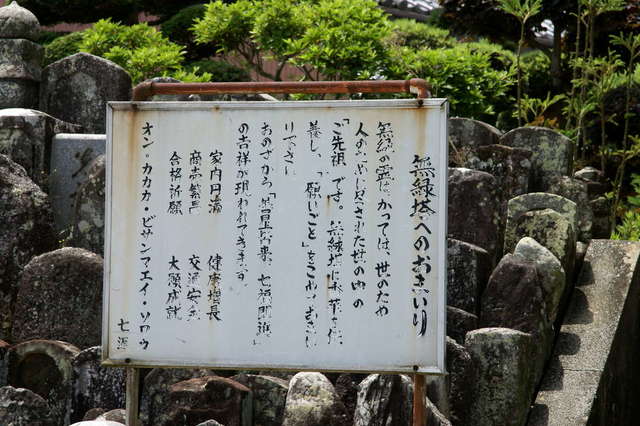 無縁塔へのおまいり
無縁の霊は、かつては、世のため
人のためにつくされた世の中の
「ご先祖」です。無縁塔にお華を供
養し、「願いごと」をこめておまい
り下さい
おのずから「 七福即進」
の吉祥が現われてきます。
家内円満 健康増長
商売繁昌 交通安全
合格祈願 大願成就
オン・カカカ・ビサンマエイ・ソワカ